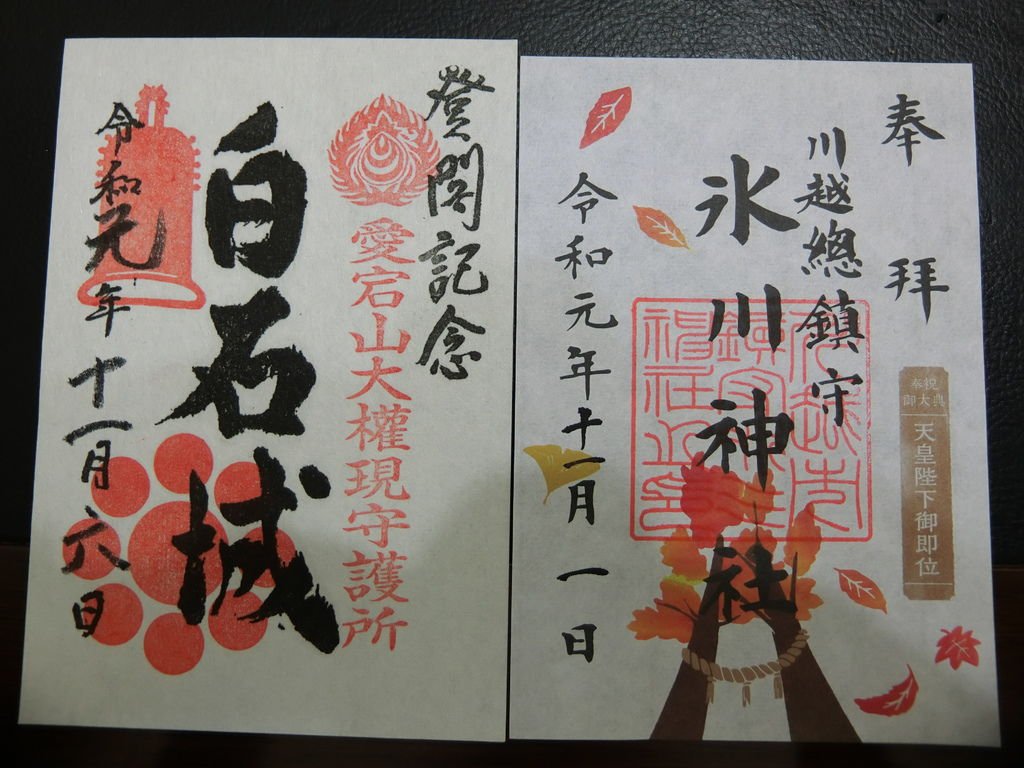 奉拜
川越總鎮守
氷川神社
令和元年十一月一日
奉祝
御大典
天皇陛下御即位
登閣記念
愛宕山大權現守護所
白石城
令和元年十一月六日